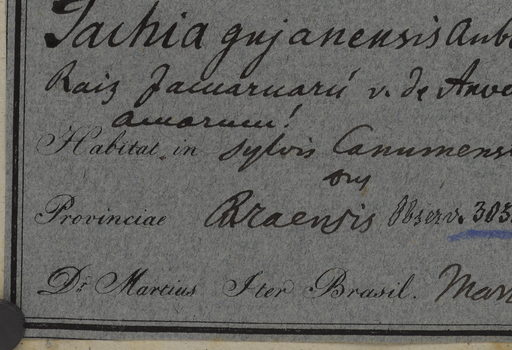 Tachia gujanensis Aubl
Raiz Jacuaruarú v. de Anve
amarum!
Habitat in sylvis Canumens
Provinciae Paraensis Observ. 303
Dr. Martius Iter Brasil. Mar